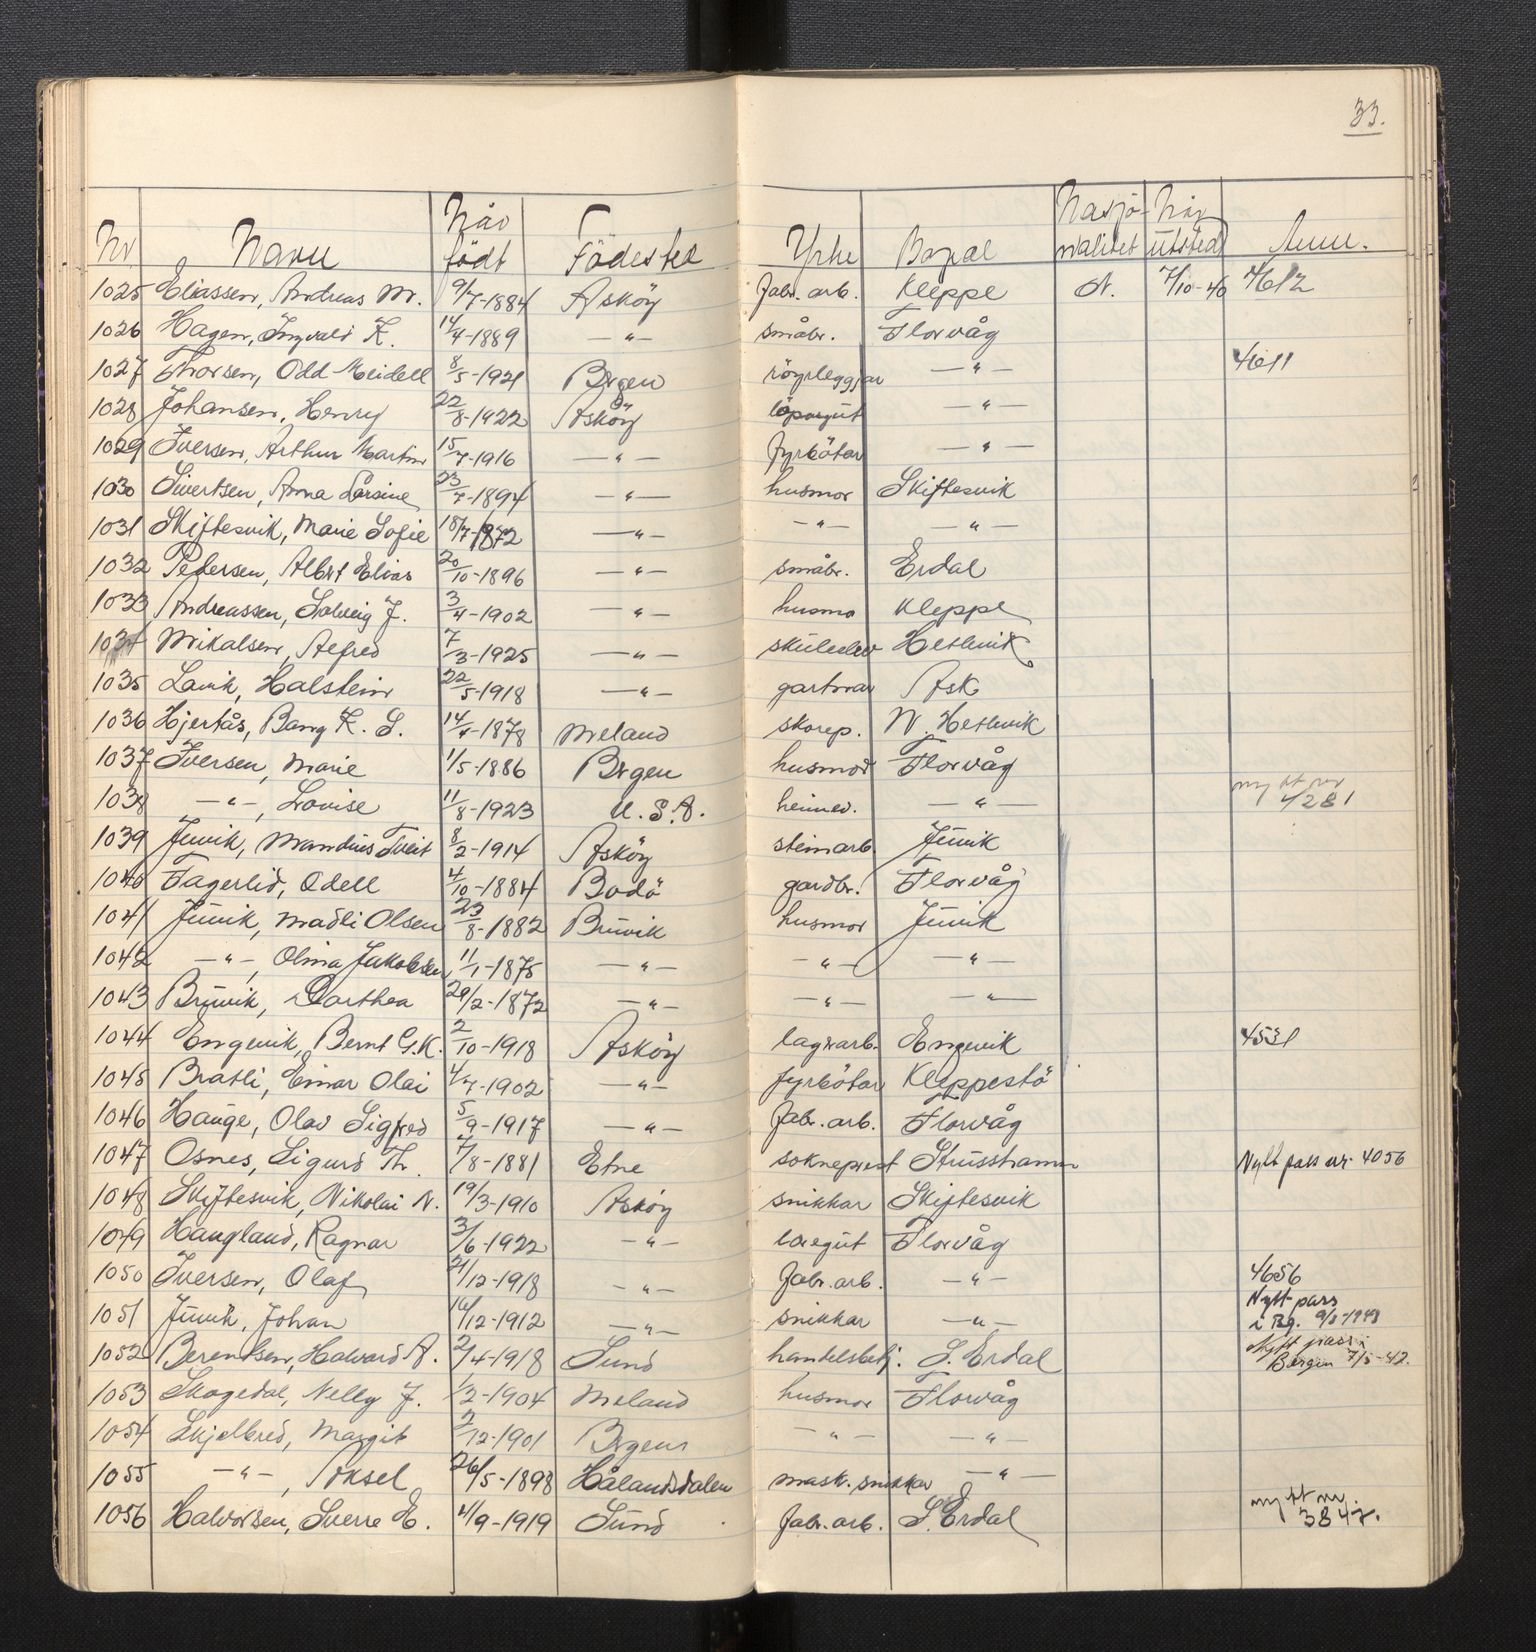 33.
Nr Navn Når födt Födested Yrke Bopæl Nasjo-nalitet Når utsted Anm.
1025 Eliassen, Andreas M. 9/7-1884 Asköy Fabr. arb. Kleppe N. 7/10-40 4612
1026 Hagen, Ingvald K. 14/4-1889 —"— småbr. Florvåg
1027 Thorsen, Odd Meidell 8/5-1921 Brgen röyrleggjar —"— 4611
1028 Johansen, Henry 22/8-1922 Asköy löpargut —"—
1029 Iversen, Arthur Martin 15/7-1916 —"— Fyrbötar —"—
1030 Sivertsen, Anna Larsine 23/7-1894 —"— husmor Skiftesvik
1031 Skiftesvik, Marie Sofie 18/7-1872 —"— —"— —"—
1032 Pedersen, Albert Elias 20/10-1896 —"— småbr. Erdal
1033 Andreassen, Solveig J. 3/4-1902 —"— husmo Kleppe
1034 Mikalsen, Alfred 7/3-1925 —"— skuleelev Hetlevik
1035 Lavik, Halstein 22/5-1918 —"— gartnar Ask
1036 Hjertås, Bang K. S. 14/4-1878 Meland skorep. N. Hetlevik
1037 Iversen, Marie 1/5-1886 Brgen husmor Florvåg
1038 —"—, Lovise 11/8-1923 U.S.A. heimev. —"— nytt nr 4281
1039 Juvik, Mandius Tveit 8/2-1914 Asköy steinarb. Juvik
1040 Fagerlid, Odell 4/10-1884 Bodö gardbr. Florvåg
1041 Juvik, Madli Olsen 23/8-1882 Bruvik husmor Juvik
1042 —"—, Olina Jakobsen 11/1-1875 —"— —"— —"—
1043 Bruvik, Dorthea 29/2-1872 —"— —"— —"—
1044 Engevik, Bernt G.K. 2/10-1918 Asköy lagrarb. Engevik 4531
1045 Bratli, Einar Olai 4/7-1902 —"— fyrbötar Kleppestö
1046 Hauge, Olav Sigfred 5/9-1917 —"— Fabr. arb. Florvåg
1047 Osnes, Sigurd Th. 7/8-1881 Etne sokneprest Strusshamn Nytt pass nr. 4056
1048 Skiftesvik, Nikolai N. 19/3-1910 Asköy snikkar Skiftesvik
1049 Haugland, Ragnar 3/6-1922 —"— læregut Florvåg
1050 Iversen, Olaf 21/12-1918 —"— Fabr. arb. —"— 4656
1051 Juvik, Johan 16/12-1912 —"— snikkar —"— Nytt pass
i Bg. 9/8-1943
1052 Berentsen, Halvard A. 2/4-1918 Sund handelsbetj. S. Erdal Nytt pass i
Bergen 7/5-42.
1053 Skogedal, Nelly J. 1/2-1904 Meland husmor Florvåg
1054 Skjelbred, Margit 2/12-1901 Brgen —"— —"—
1055 —"—, Aksel 26/5-1898 Hålandsdalen mask. snikkar —"—
1056 Halvorsen, Sverre E. 4/9-1919 Sund Fabr. arb. S. Erdal nytt nr.
3847.